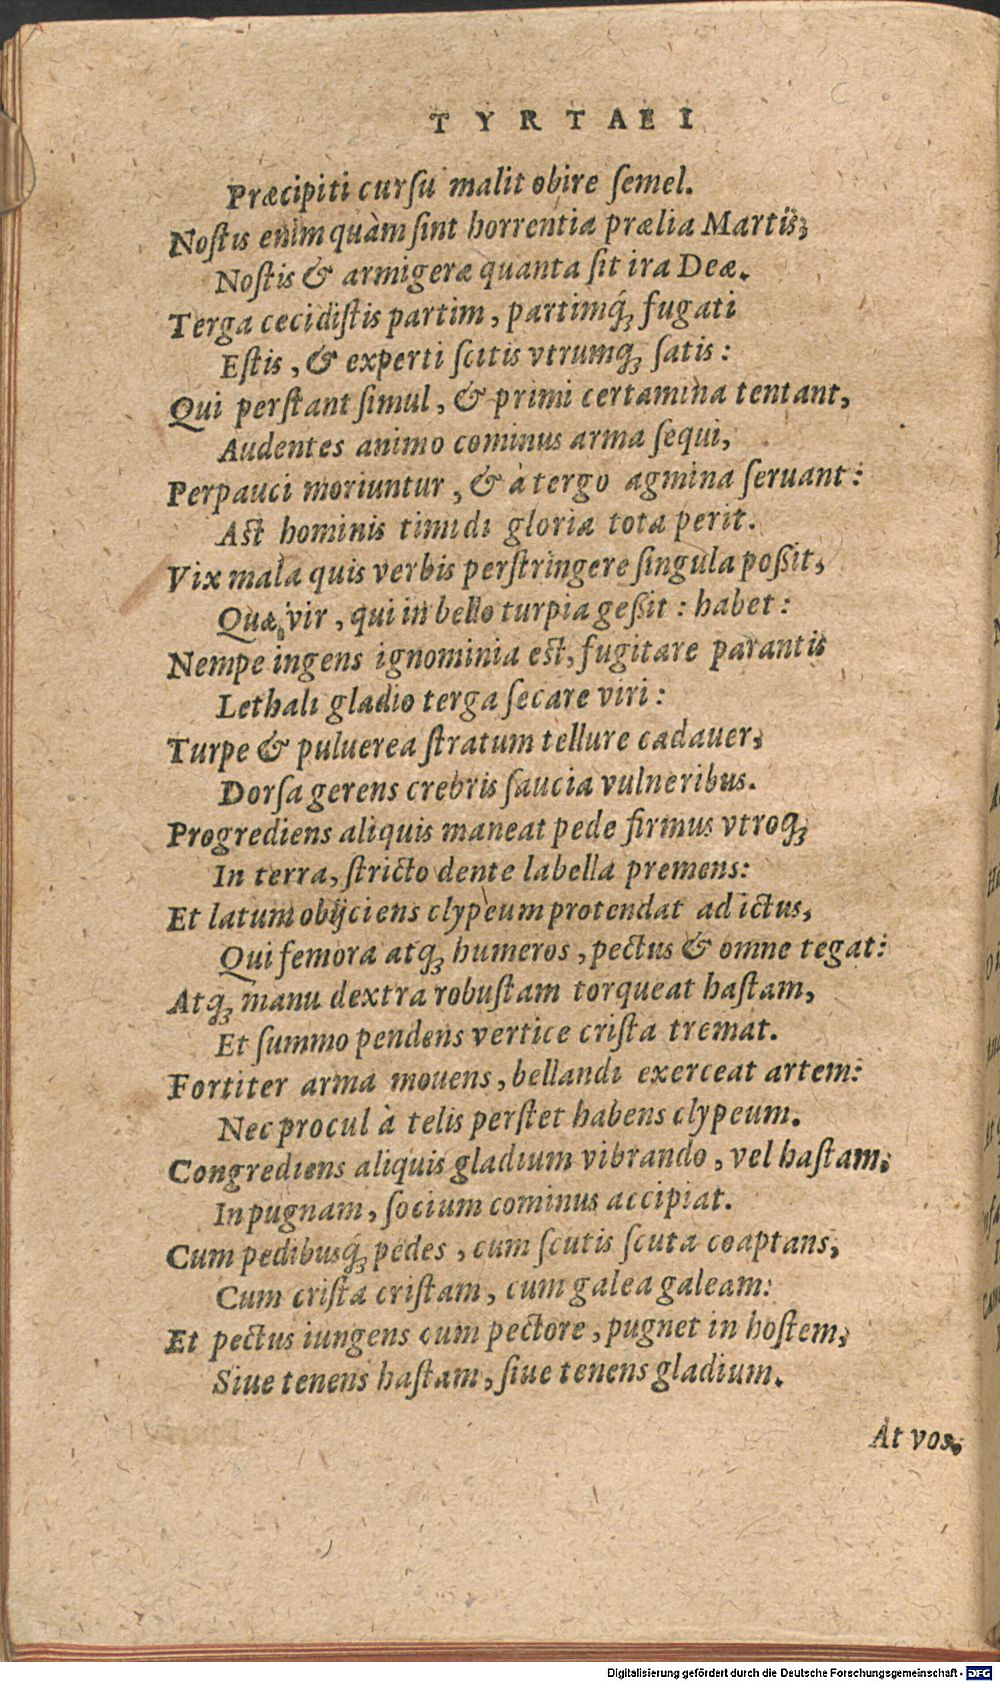 TYRTAEI
Præcipiti cursu malit obire semel.
Nostis enim quàm sint horrentia prælia Martis,
Nostis & armigeræ quanta sit ira Deæ.
Terga cecidistis partim, partimq́; fugati
Estis, & experti scitis vtrumq; satis:
Qui perstant simul, & primi certamina tentant,
Audentes animo cominus arma sequi,
Perpauci moriuntur, & à tergo agmina seruant:
Ast hominis timidi gloria tota perit.
Vix mala quis verbis perstringere singula possit,
Quæ vir, qui in bello turpia gessit: habet:
Nempe ingens ignominia est, fugitare parantis
Lethali gladio terga secare viri:
Turpe & puluerea stratum tellure cadauer,
Dorsa gerens crebris saucia vulneribus.
Progrediens aliquis maneat pede firmus vtroq;
In terra, stricto dente labella premens:
Et latum obijciens clypeum protendat ad ictus,
Qui femora atq; humeros, pectus & omne tegat:
Atq; manu dextra robustam torqueat hastam,
Et summo pendens vertice crista tremat.
Fortiter arma mouens, bellandi exerceat artem:
Nec procul à telis perstet habens clypeum.
Congrediens aliquis gladium vibrando, vel hastam,
In pugnam, socium cominus accipiat.
Cum pedibusq́; pedes, cum scutis scuta coaptans,
Cum crista cristam, cum galea galeam:
Et pectus iungens cum pectore, pugnet in hostem,
Siue tenens hastam, siue tenens gladium.
At vos,
Digitalisierung gefördert durch die Deutsche Forschungsgemeinschaft - DFG